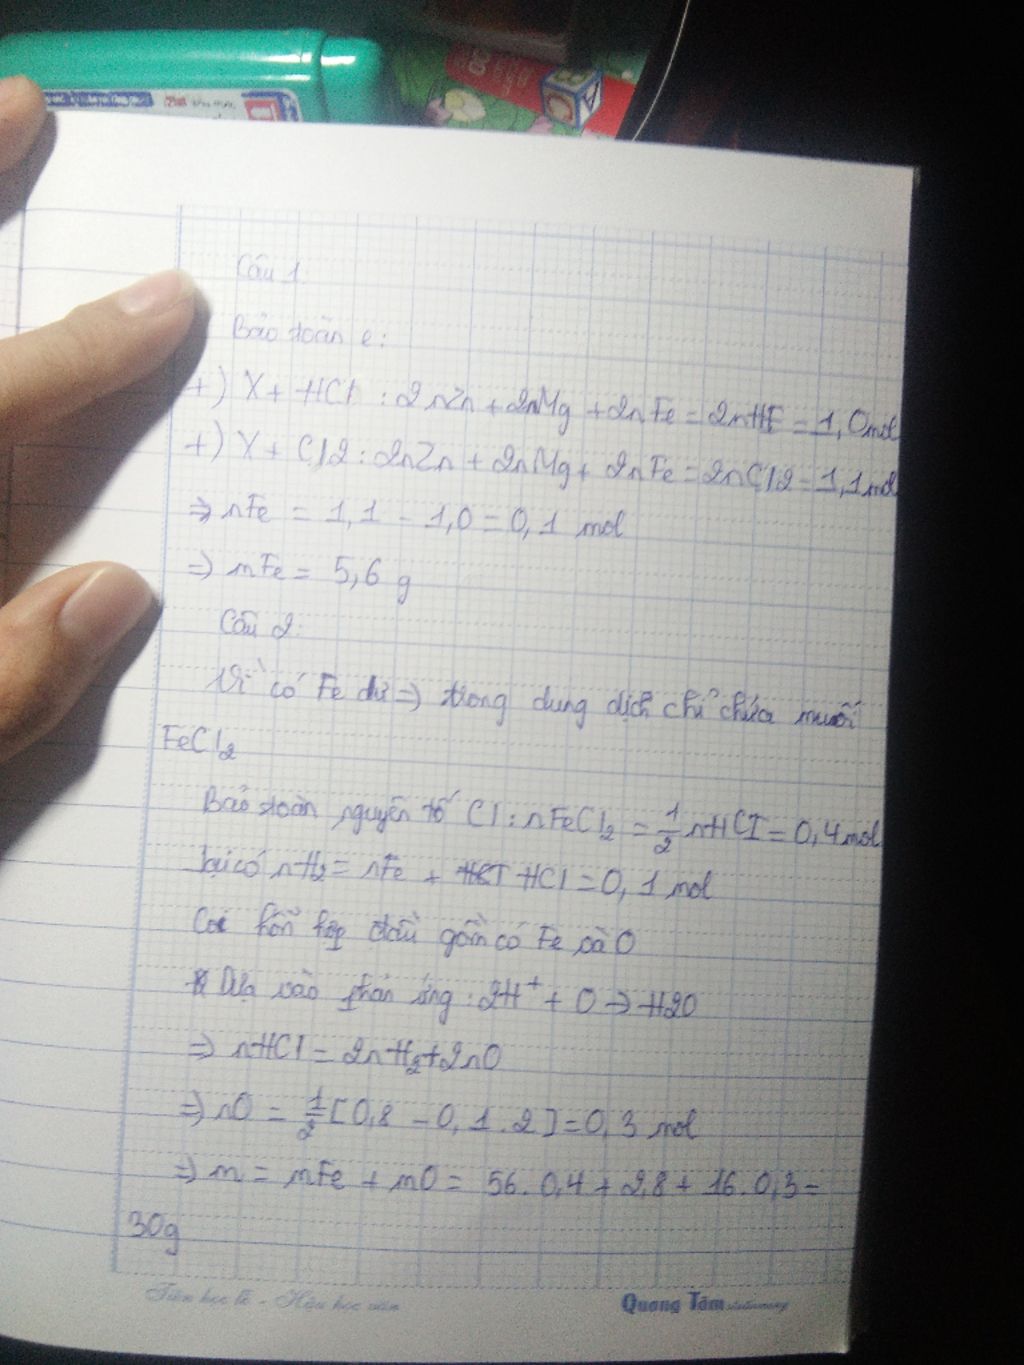 Câu 1
Bảo toàn e:
+) X + HCl : 2nZn + 2nMg + 2nFe = 2nHF = 1,0mol
+) X + Cl2 : 2nZn + 2nMg + 2nFe = 2nCl2 = 1,1mol
=> nFe = 1,1 - 1,0 = 0,1 mol
=> mFe = 5,6 g
Câu 2:
Vì có Fe dư => trong dung dịch chỉ chứa muối
FeCl2
Bảo toàn nguyên tố Cl : nFeCl2 = 1/2 nHCl = 0,4mol
lại có nH2 = nFe + HCl = 0,1 mol
Coi hỗn hợp đầu gồm có Fe và O
Dựa vào phản ứng : 2H+ + O -> H2O
=> nHCl = 2nH2 + 2nO
=> nO = 1/2 [0,8 - 0,1 . 2] = 0,3 mol
=> m = mFe + mO = 56. 0,4 + 2,8 + 16. 0,3 =
30g
Tiên học lễ - Hậu học văn
Quang Tâm